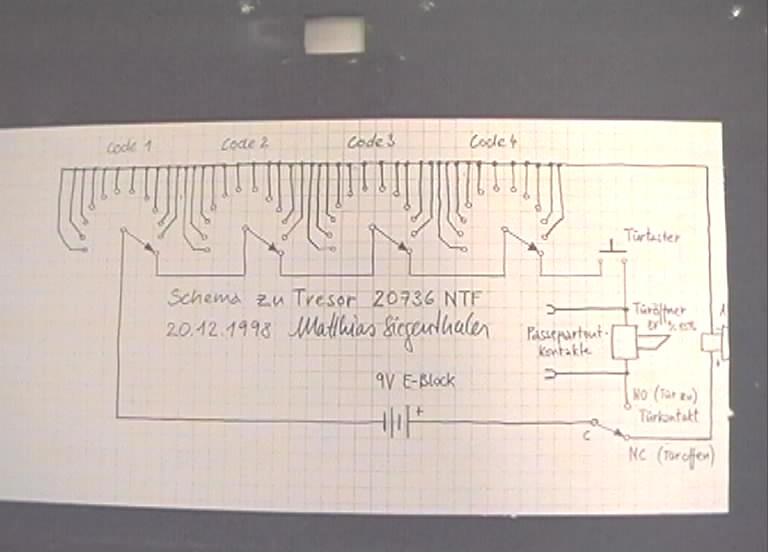 Code 1 Code 2 Code 3 Code 4
Türtaster
Schema zu Tresor 20736 NTF
20.12.1998 Matthias Siegenthaler
Türöffner
Passepartout-
Kontakte
9V E-Block
+
NO (Tür zu)
Türkontakt
C
NC (Tür offen)